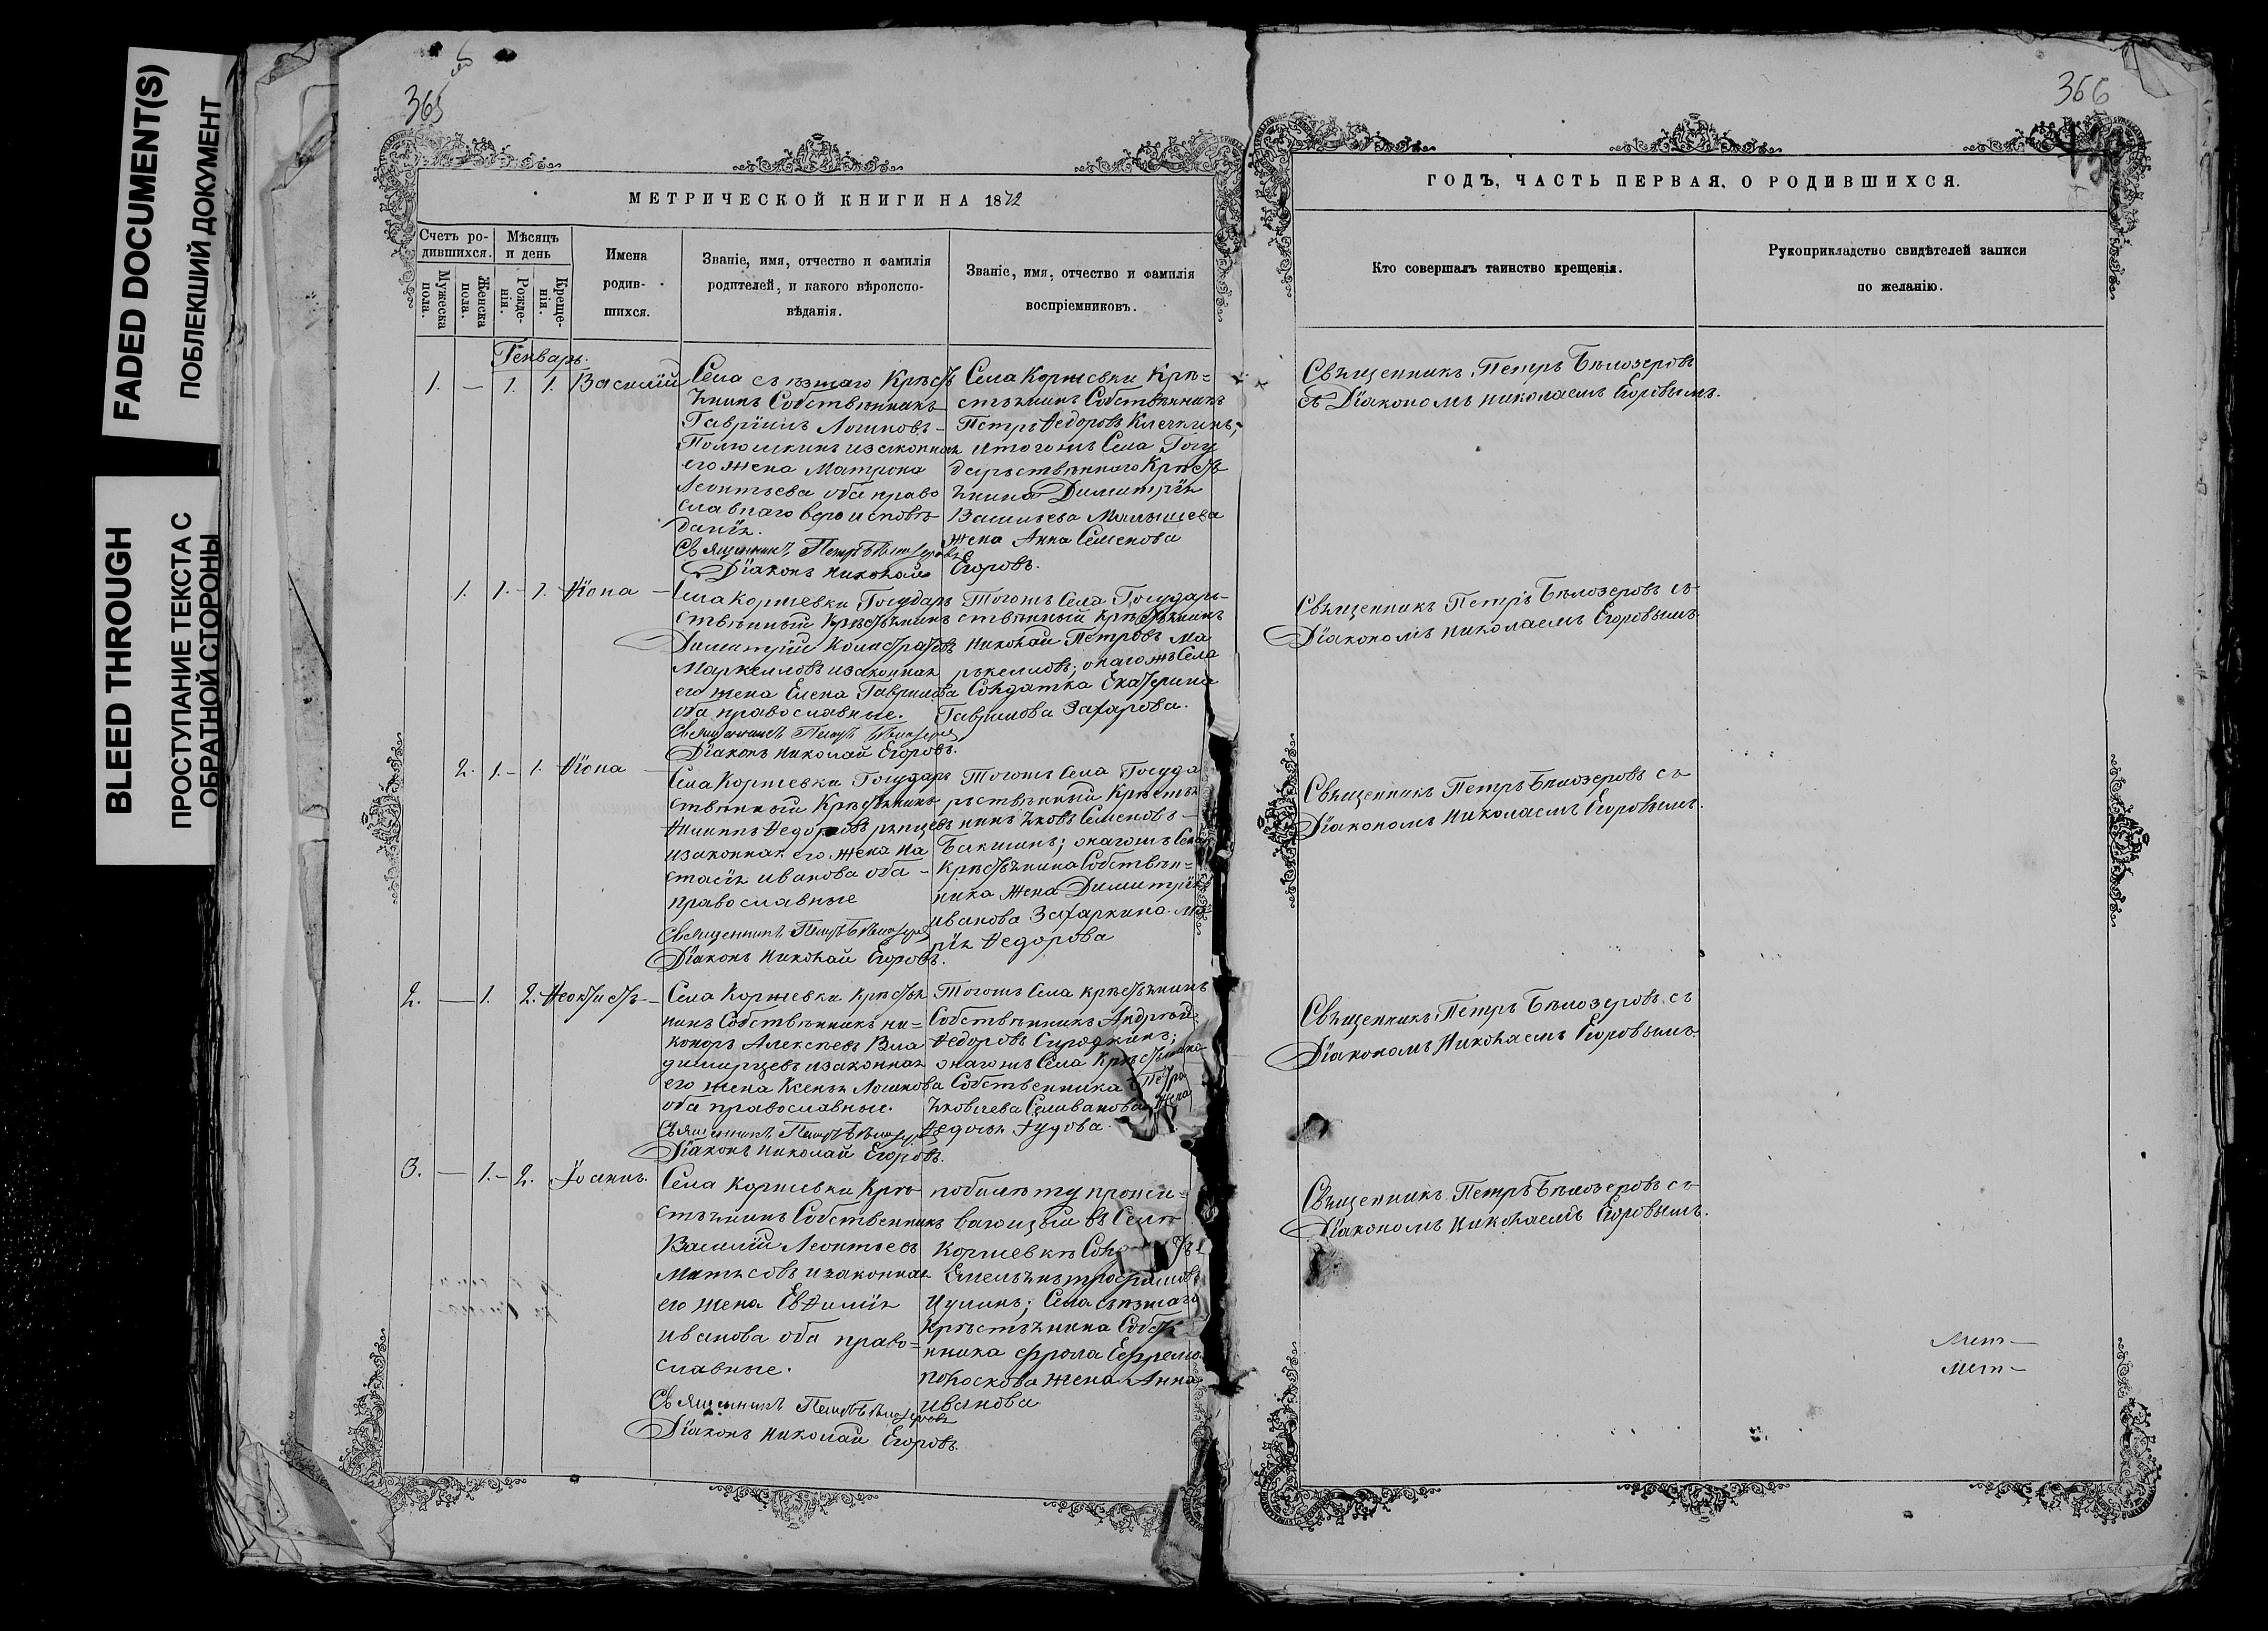 FADED DOCUMENT(S)
ПОБЛЕКШИЙ ДОКУМЕНТ
BLEED THROUGH
ПРОСТУПАНИЕ ТЕКСТА С
ОБРАТНОЙ СТОРОНЫ
365
МЕТРИЧЕСКОЙ КНИГИ НА 1872
Счетъ ро-
дившихся.
Мужеска
пола.
Женска
пола.
Мѣсяцъ
и день
Рожде-
нія.
Креще-
нія.
Имена
родив-
шихся.
Званіе, имя, отчество и фамилія
родителей, и какого вѣроиспо-
вѣданія.
Званіе, имя, отчество и фамилія
воспріемниковъ.
Генварь.
1. — 1. 1. Василій
Села
Собственникъ
Гавріилъ Логиновъ
его жена Матрона
Леонтьева оба право
славнаго вероисповѣ
данія.
Священникъ Петръ Бѣлозеровъ
Діаконъ Николай Егоровъ.
Села Коржевки Крѣ=
стьянинъ Собственникъ
Петръ Ѳедоровъ Клечкинъ;
итогожъ Села Госу
дарственнаго Крест
ьянина Димитрія
Васильева Малышева
жена Анна Семенова
1. 1. - 1. Ѳіона
Села Коржевки Государ
ственный Крестьянинъ
Димитрій Калистратовъ
Маркелловъ изаконная
его жена Елена Гаврилова
оба православные.
Священникъ Петръ Бѣлозеровъ
Діаконъ Николай Егоровъ.
Тогожъ Села Государ-
ственный Крестьянинъ
Николай Петровъ Ма
ркелловъ; онагожъ Села
Солдатка Екатерина
Гаврилова Захарова.
2. 1. - 1. Ѳіона
Села Коржевки Государ
ственный Крестьянинъ
изаконная его жена На
стасія Иванова оба -
православные
Священникъ Петръ Бѣлозеровъ
Діаконъ Николай Егоровъ.
Тогожъ Села Госуда
рственный Крестья
нинъ Яковъ Семеновъ -
Бакшинъ; онагожъ Села
Крестьянина Собствен=
ника жена Димитрія
Иванова Захаркина Ма
рія Ѳедорова
2. — 1. 2. Ѳеоктистъ —
Села Коржевки Крестья
нинъ Собственникъ Ни=
каноръ Алексѣевъ Вла
димирцевъ изаконная
его жена Ксенья Логинова
оба православные.
Священникъ Петръ Бѣлозеровъ
Діаконъ Николай Егоровъ.
Тогожъ Села крестьянинъ
Собственникъ Андрей
Ѳедоровъ Сироткинъ;
онагожъ Села Крестьянина
Собственника Петра
Яковлева Селиванова жена
Ѳедосья
3. — 1. - 2. Іоаннъ.
Села Коржевки Кре
стьянинъ Собственникъ
Василій Леонтьевъ
изаконная
его жена Евѳимія
Иванова оба право=
славные.
Священникъ Петръ Бѣлозеровъ
Діаконъ Николай Егоровъ.
побилету прожи=
вающій въ Селѣ
Коржевкѣ
Цулинъ; Села
Крестьянина Собст
нника Фрола Ефремо
жена Анна
Иванова
366
ГОДЪ, ЧАСТЬ ПЕРВАЯ, О РОДИВШИХСЯ.
Кто совершалъ таинство крещенія.
Рукоприкладство свидѣтелей записи
по желанію.
Священникъ Петръ Бѣлозеровъ
съ Діакономъ Николаемъ Егоровымъ.
Священникъ Петръ Бѣлозеровъ съ
Діакономъ Николаемъ Егоровымъ.
Священникъ Петръ Бѣлозеровъ съ
Діакономъ Николаемъ Егоровымъ.
Священникъ Петръ Бѣлозеровъ съ
Діакономъ Николаемъ Егоровымъ.
Священникъ Петръ Бѣлозеровъ съ
Діакономъ Николаемъ Егоровымъ.